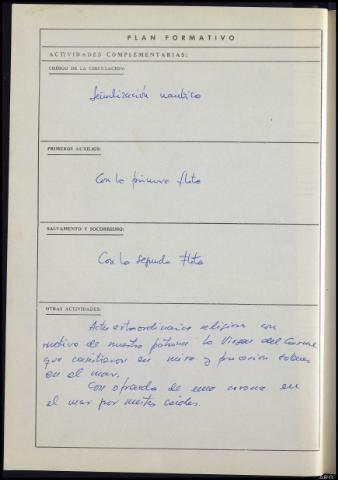 PLAN FORMATIVO
ACTIVIDADES COMPLEMENTARIAS:
CÓDIGO DE LA CIRCULACIÓN:
Señalización nautica
PRIMEROS AUXILIOS:
Con la primera flota
SALVAMENTO Y SOCORRISMO:
Con la segunda Flota
OTRAS ACTIVIDADES:
Actos extraordinarios religiosos con
motivo de nuestra patrona la Virgen del Carmen
que consistieron en misa y procesion
en el mar.
Con ofrenda de una corona en
el mar por nuestros caidos.